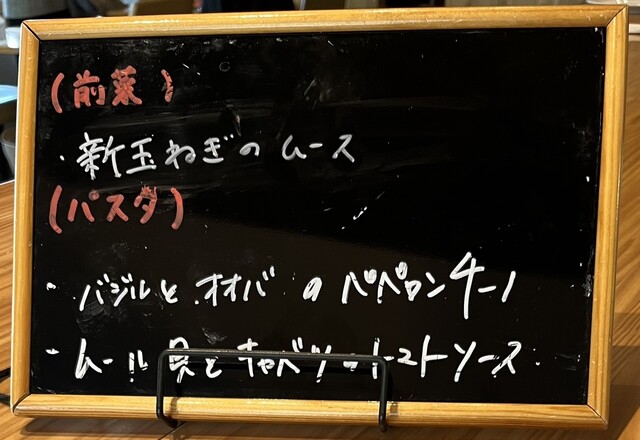 (前菜)
・新玉ねぎのムース
(パスタ)
・バジルとオオバのペペロンチーノ
・ムール貝とキャベツのトマトソース